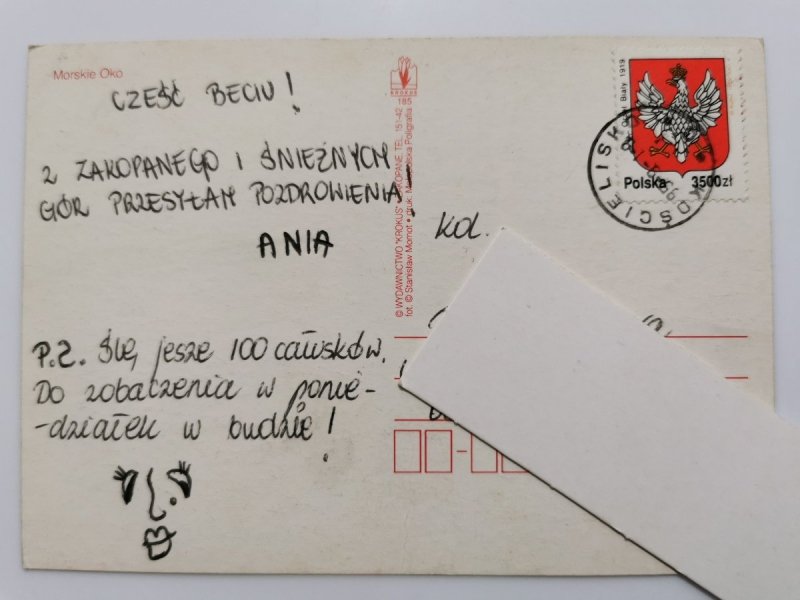 Morskie Oko
CZEŚĆ BECIU!
Z ZAKOPANEGO I ŚNIEŻNYCH
GÓR PRZESYŁAM POZDROWIENIA!
ANIA
P.S. Ślę jesze 100 całusków.
Do zobaczenia w ponie-
-działek w budzie!
KROKUS
185
© WYDAWNICTWO "KROKUS" ZAKOPANE, TEL. 151-42
fot. © Stanisław Momot • druk:
Poligrafia
Kol.
Biały 1919
Polska 3500zł
KOŚCIELISKO